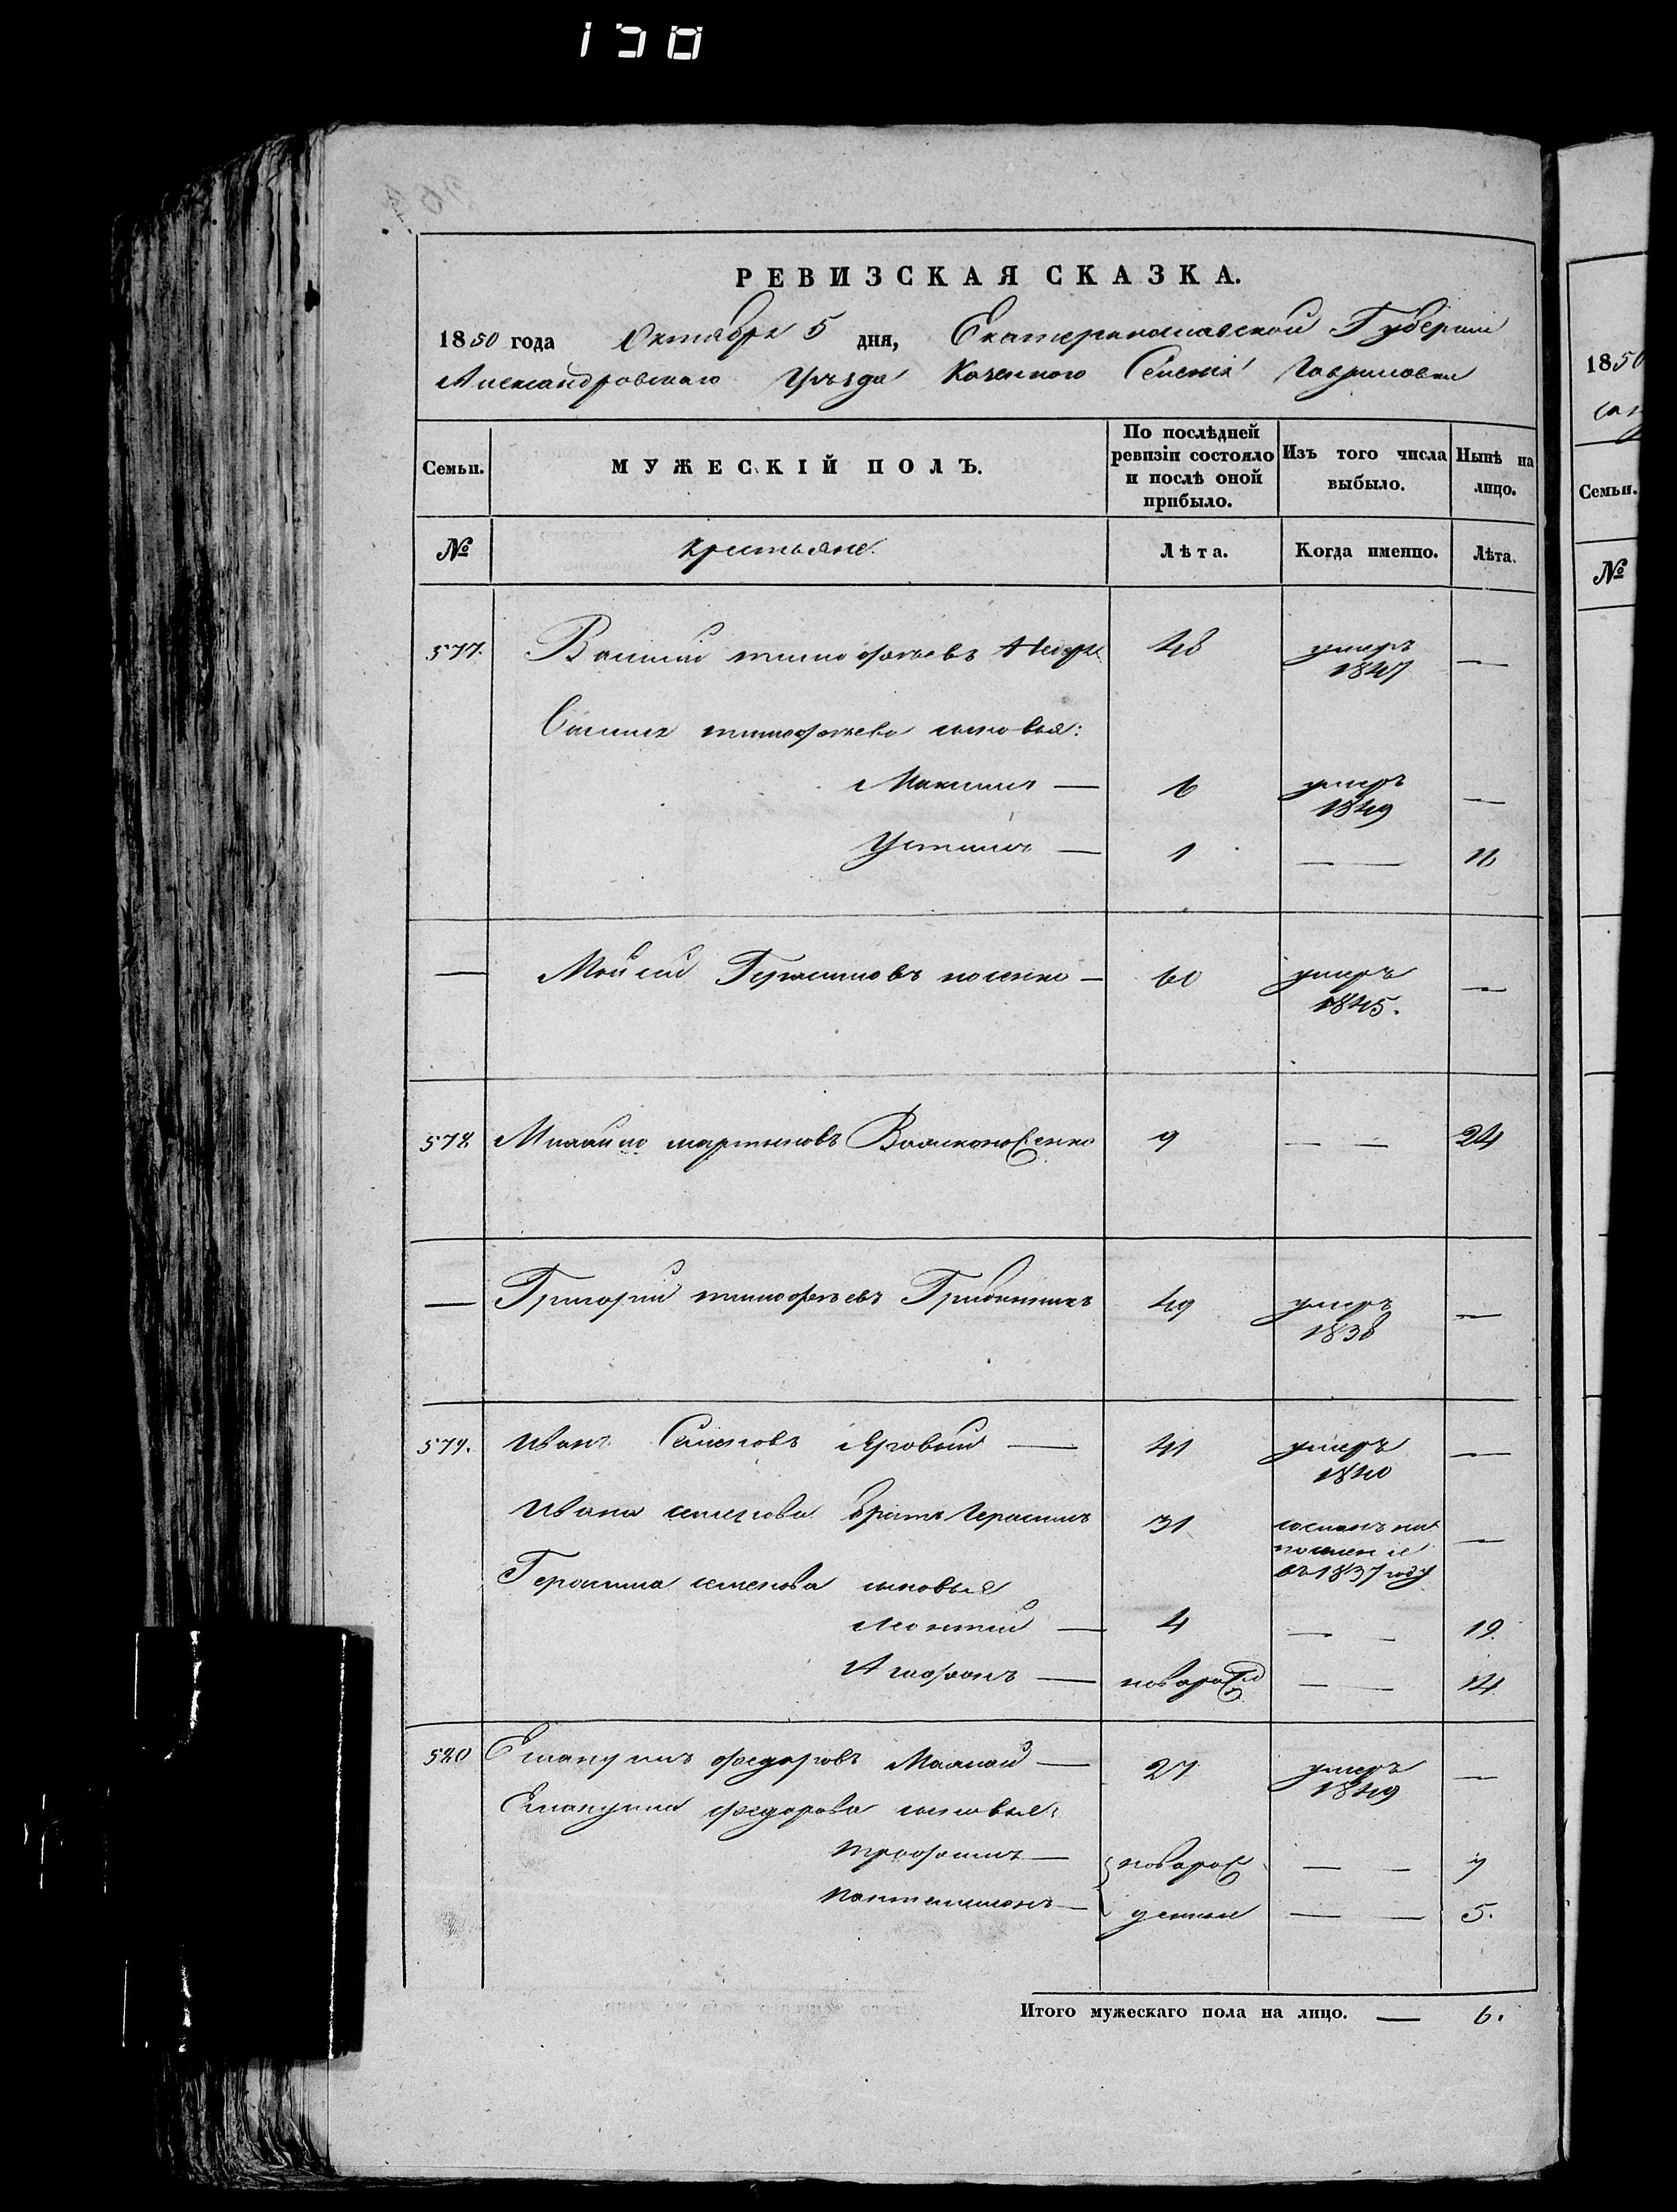 130
РЕВИЗСКАЯ СКАЗКА.
1850 года Октября 5 дня, Екатеринославской Губернии
Александровскаго Уѣзда Казенного Селения Гавриловки
Семьи.
МУЖЕСКІЙ ПОЛЪ.
По послѣдней ревизіи состояло и послѣ оной прибыло.
Изъ того числа выбыло.
Нынѣ на лицо.
№
крестьяне.
Лѣта.
Когда именно.
Лѣта.
577. тимофѣевъ 48 умеръ 1847 —
тимофѣева сыновья:
Максимъ — 6 умеръ 1849 —
Устимъ — 1 — —
— Мойсей Герасимовъ — 60 умеръ 1845. —
578 Михайло мартыновъ 9 — — 24
— Григорий тимофѣевъ 49 умеръ 1838 —
579. Иванъ Семеновъ Яровый — 41 умеръ 1840 —
Ивана семенова братъ Герасимъ 31 сосланъ на поселение въ 1837 году —
Герасима семенова сыновья
Леонтий — 4 — — 19.
Агафонъ — новорож — — 14
580 федоровъ Мамай — 27 умеръ 1849 —
федорова сыновья:
трофимъ — новорож — —
Пантелимонъ — — — 5.
Итого мужескаго пола на лицо. — 6.
1850
Семьи.
№